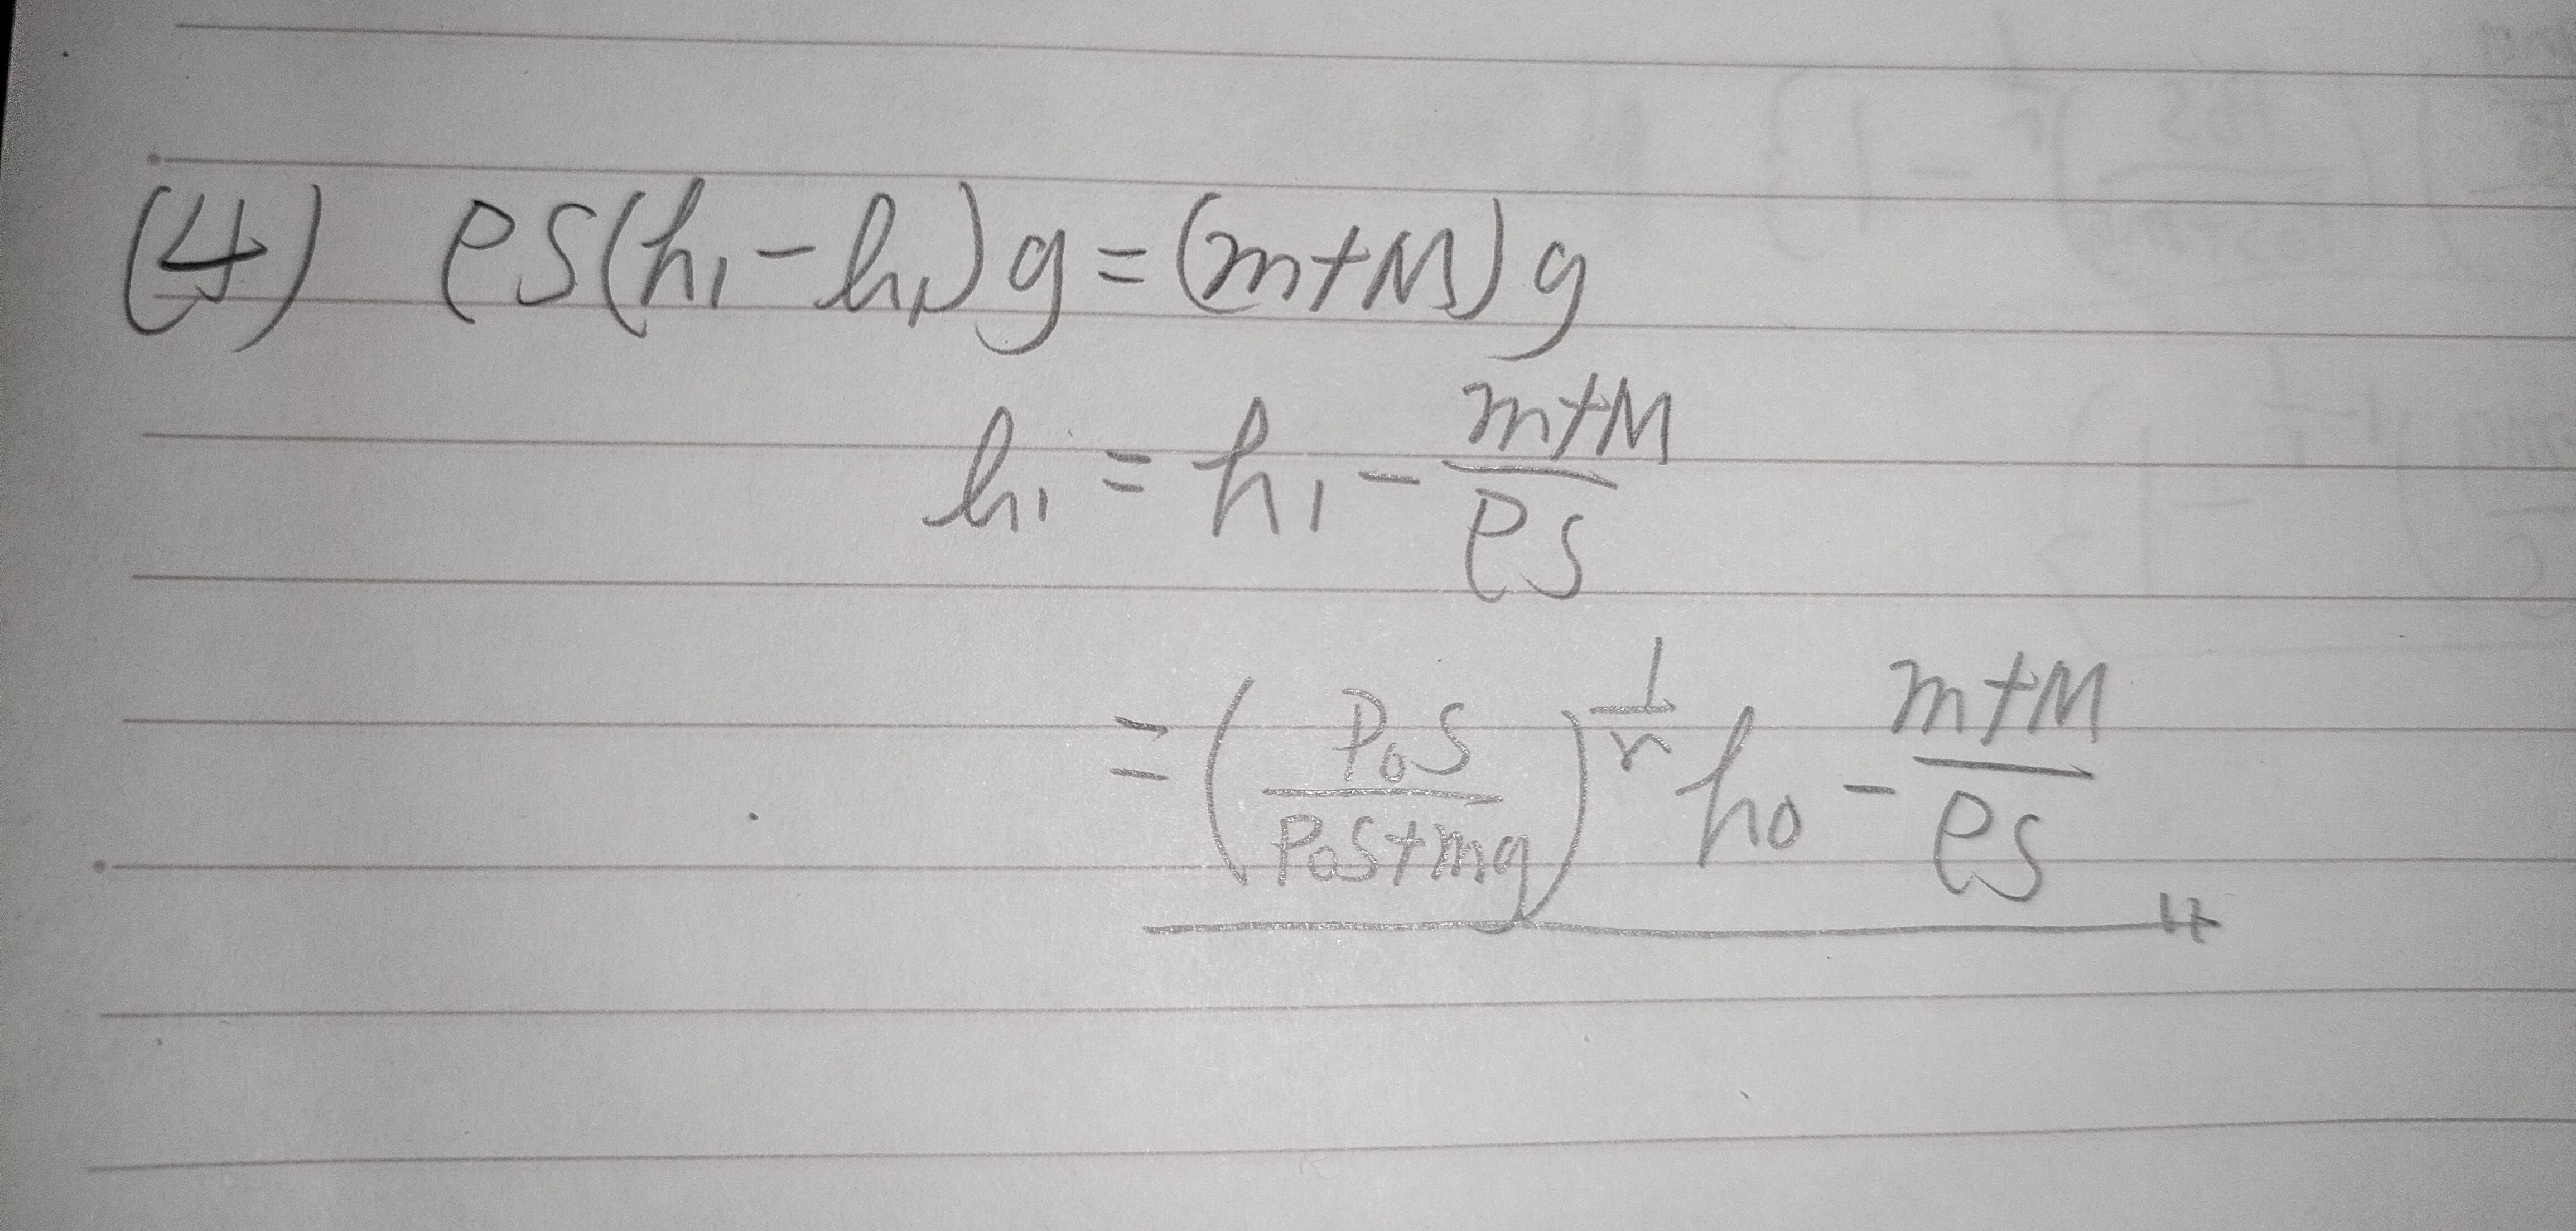 (4) ρS(h₁-l₁)g=(m+M)g
l₁=h₁-\frac{m+M}{ρS}
=(\frac{P₀S}{P₀S+mg})^{\frac{1}{r}}h₀-\frac{m+M}{ρS}